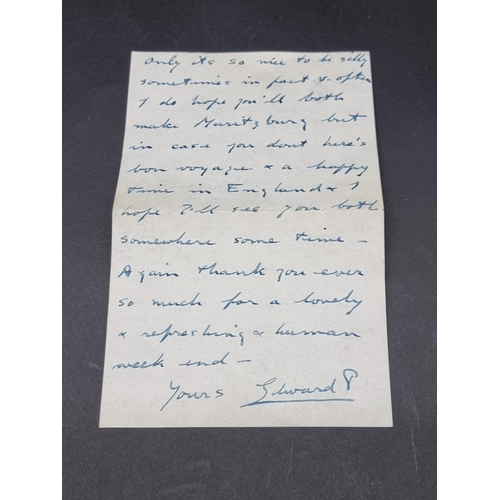 Only its so nice to be silly
sometimes in fact & often
I do hope you'll both
make Maritzburg but
in case you dont here's
bon voyage & a happy
time in England & I
hope I'll see you both
somewhere some time –
Again thank you ever
so much for a lovely
& refreshing & human
week end –
Yours Edward P